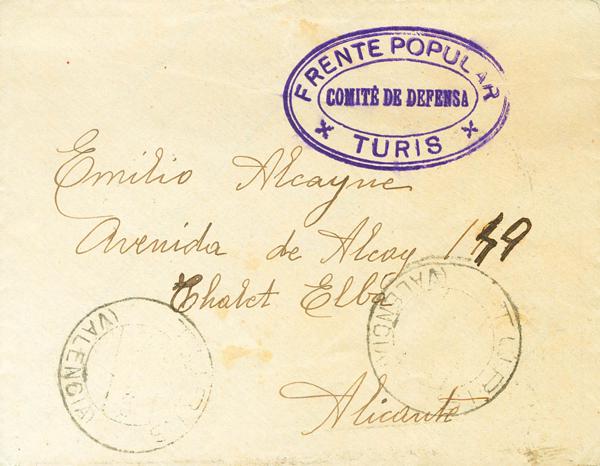 FRENTE POPULAR
COMITÉ DE DEFENSA
TURIS
Emilio Alcayne
Avenida de Alcoy 149
Chalet Elba
Alicante
TURIS
(VALENCIA)
TURIS
(VALENCIA)